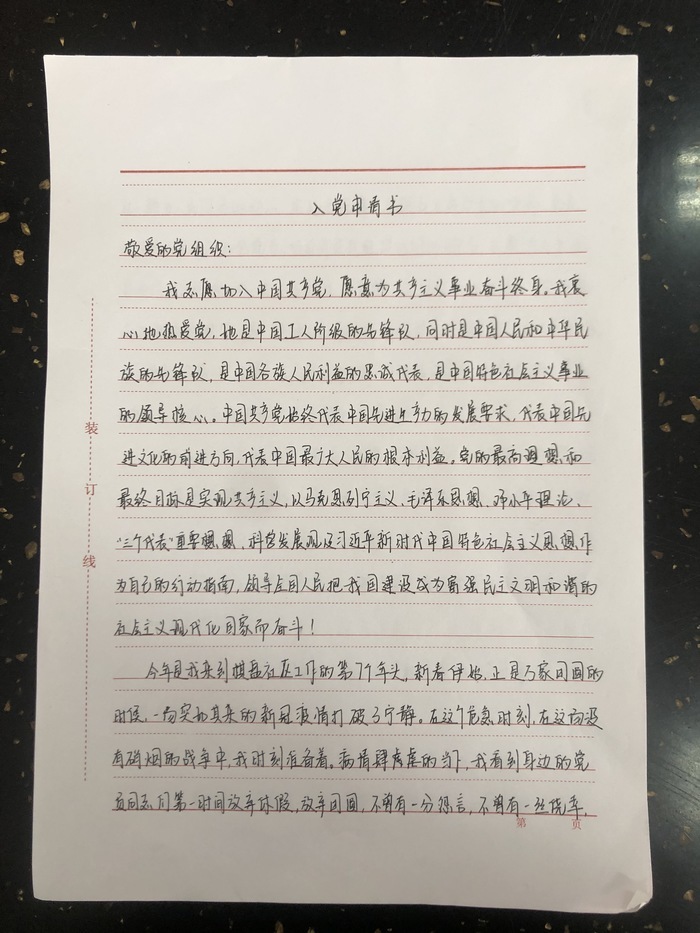 入党申请书
敬爱的党组织：
我志愿加入中国共产党，愿意为共产主义事业奋斗终身。我衷
心地热爱党，她是中国工人阶级的先锋队，同时是中国人民和中华民
族的先锋队，是中国各族人民利益的忠诚代表，是中国特色社会主义事业
的领导核心。中国共产党始终代表中国先进生产力的发展要求，代表中国先
进文化的前进方向，代表中国最广大人民的根本利益。党的最高理想和
最终目标是实现共产主义，以马克思列宁主义、毛泽东思想、邓小平理论、
“三个代表”重要思想、科学发展观及习近平新时代中国特色社会主义思想作
为自己的行动指南，领导全国人民把我国建设成为富强民主文明和谐的
社会主义现代化国家而奋斗！
今年是我来到棋盘社区工作的第7个年头，新春伊始，正是万家团圆的
时候，一场突如其来的新冠疫情打破了宁静。在这个危急时刻，在这场没
有硝烟的战争中，我时刻准备着。病情肆虐的当下，我看到身边的党
员同志们第一时间放弃休假，放弃团圆，不曾有一分怨言，不曾有一丝侥幸，
装
订
线
第 页